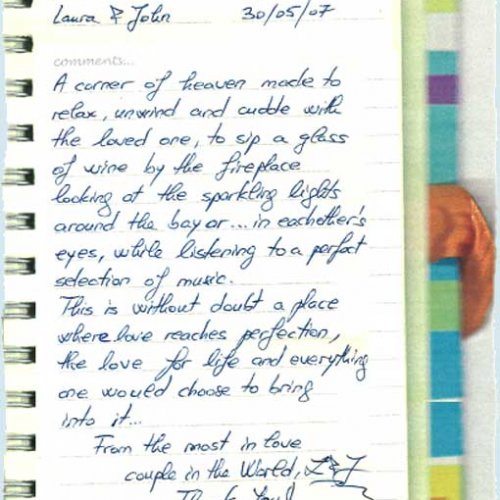 Laura & John 30/05/07
comments...
A corner of heaven made to
relax, unwind and cuddle with
the loved one, to sip a glass
of wine by the fireplace
looking at the sparkling lights
around the bay or... in eachother's
eyes, while listening to a perfect
selection of music.
This is without doubt a place
where love reaches perfection,
the love for life and everything
one would choose to bring
into it...
From the most in love
couple in the World, L&J
Thank You!